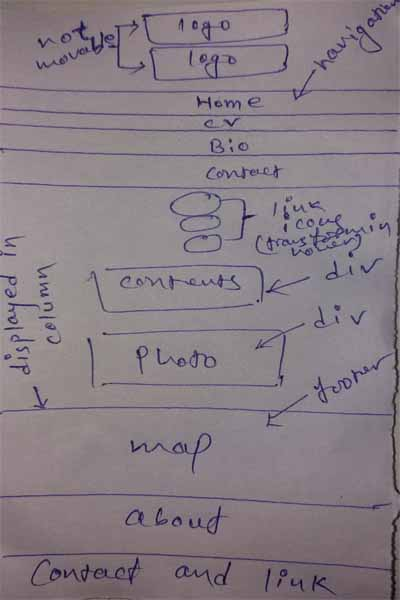 not
movable
logo
logo
navigation
Home
CV
Bio
Contact
link
icons
displayed in
column
contents
div
Photo
div
footer
map
about
Contact and link